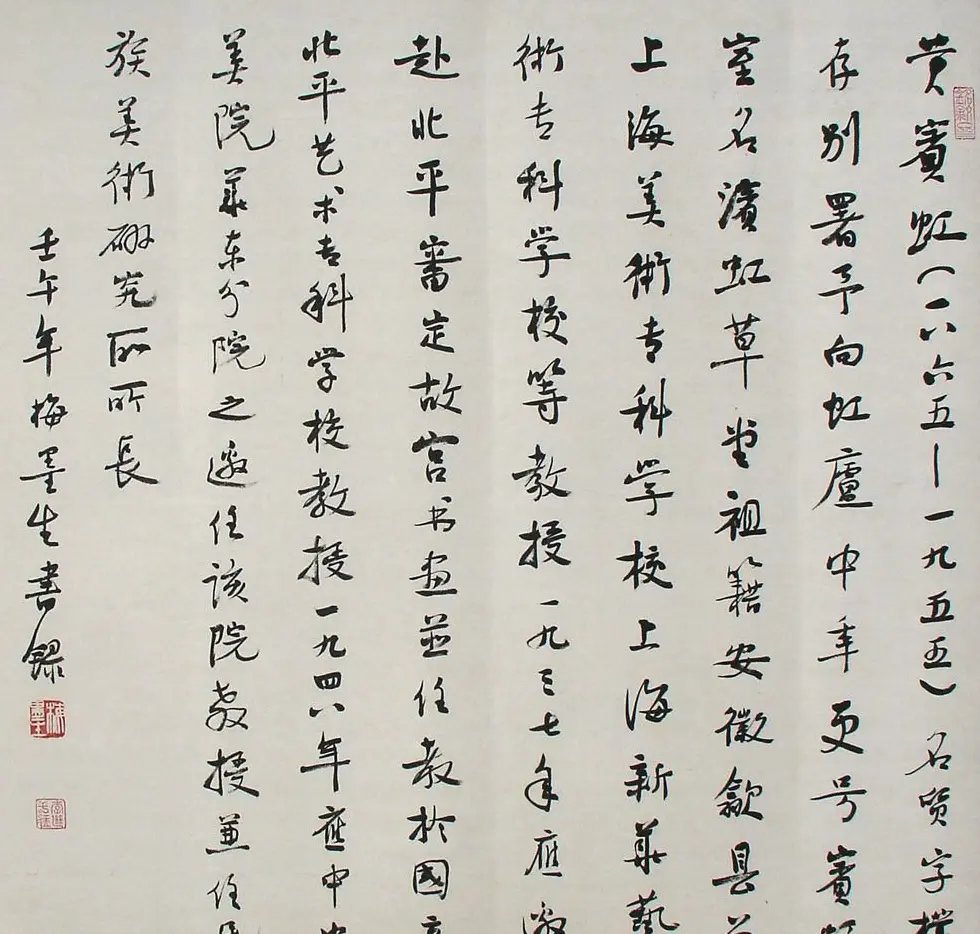 黄賓虹（一八六五—一九五五）名質字樸
存别署予向虹廬中年更号賓虹
室名濱虹草堂祖籍安徽歙县
上海美術专科学校上海新華藝
術专科学校等教授一九三七年應邀
赴北平審定故宫书画並任教於國立
北平艺术专科学校教授一九四八年應中央
美院華东分院之邀任该院教授兼任民
族美術研究所所長
壬午年梅墨生書錄
梅墨